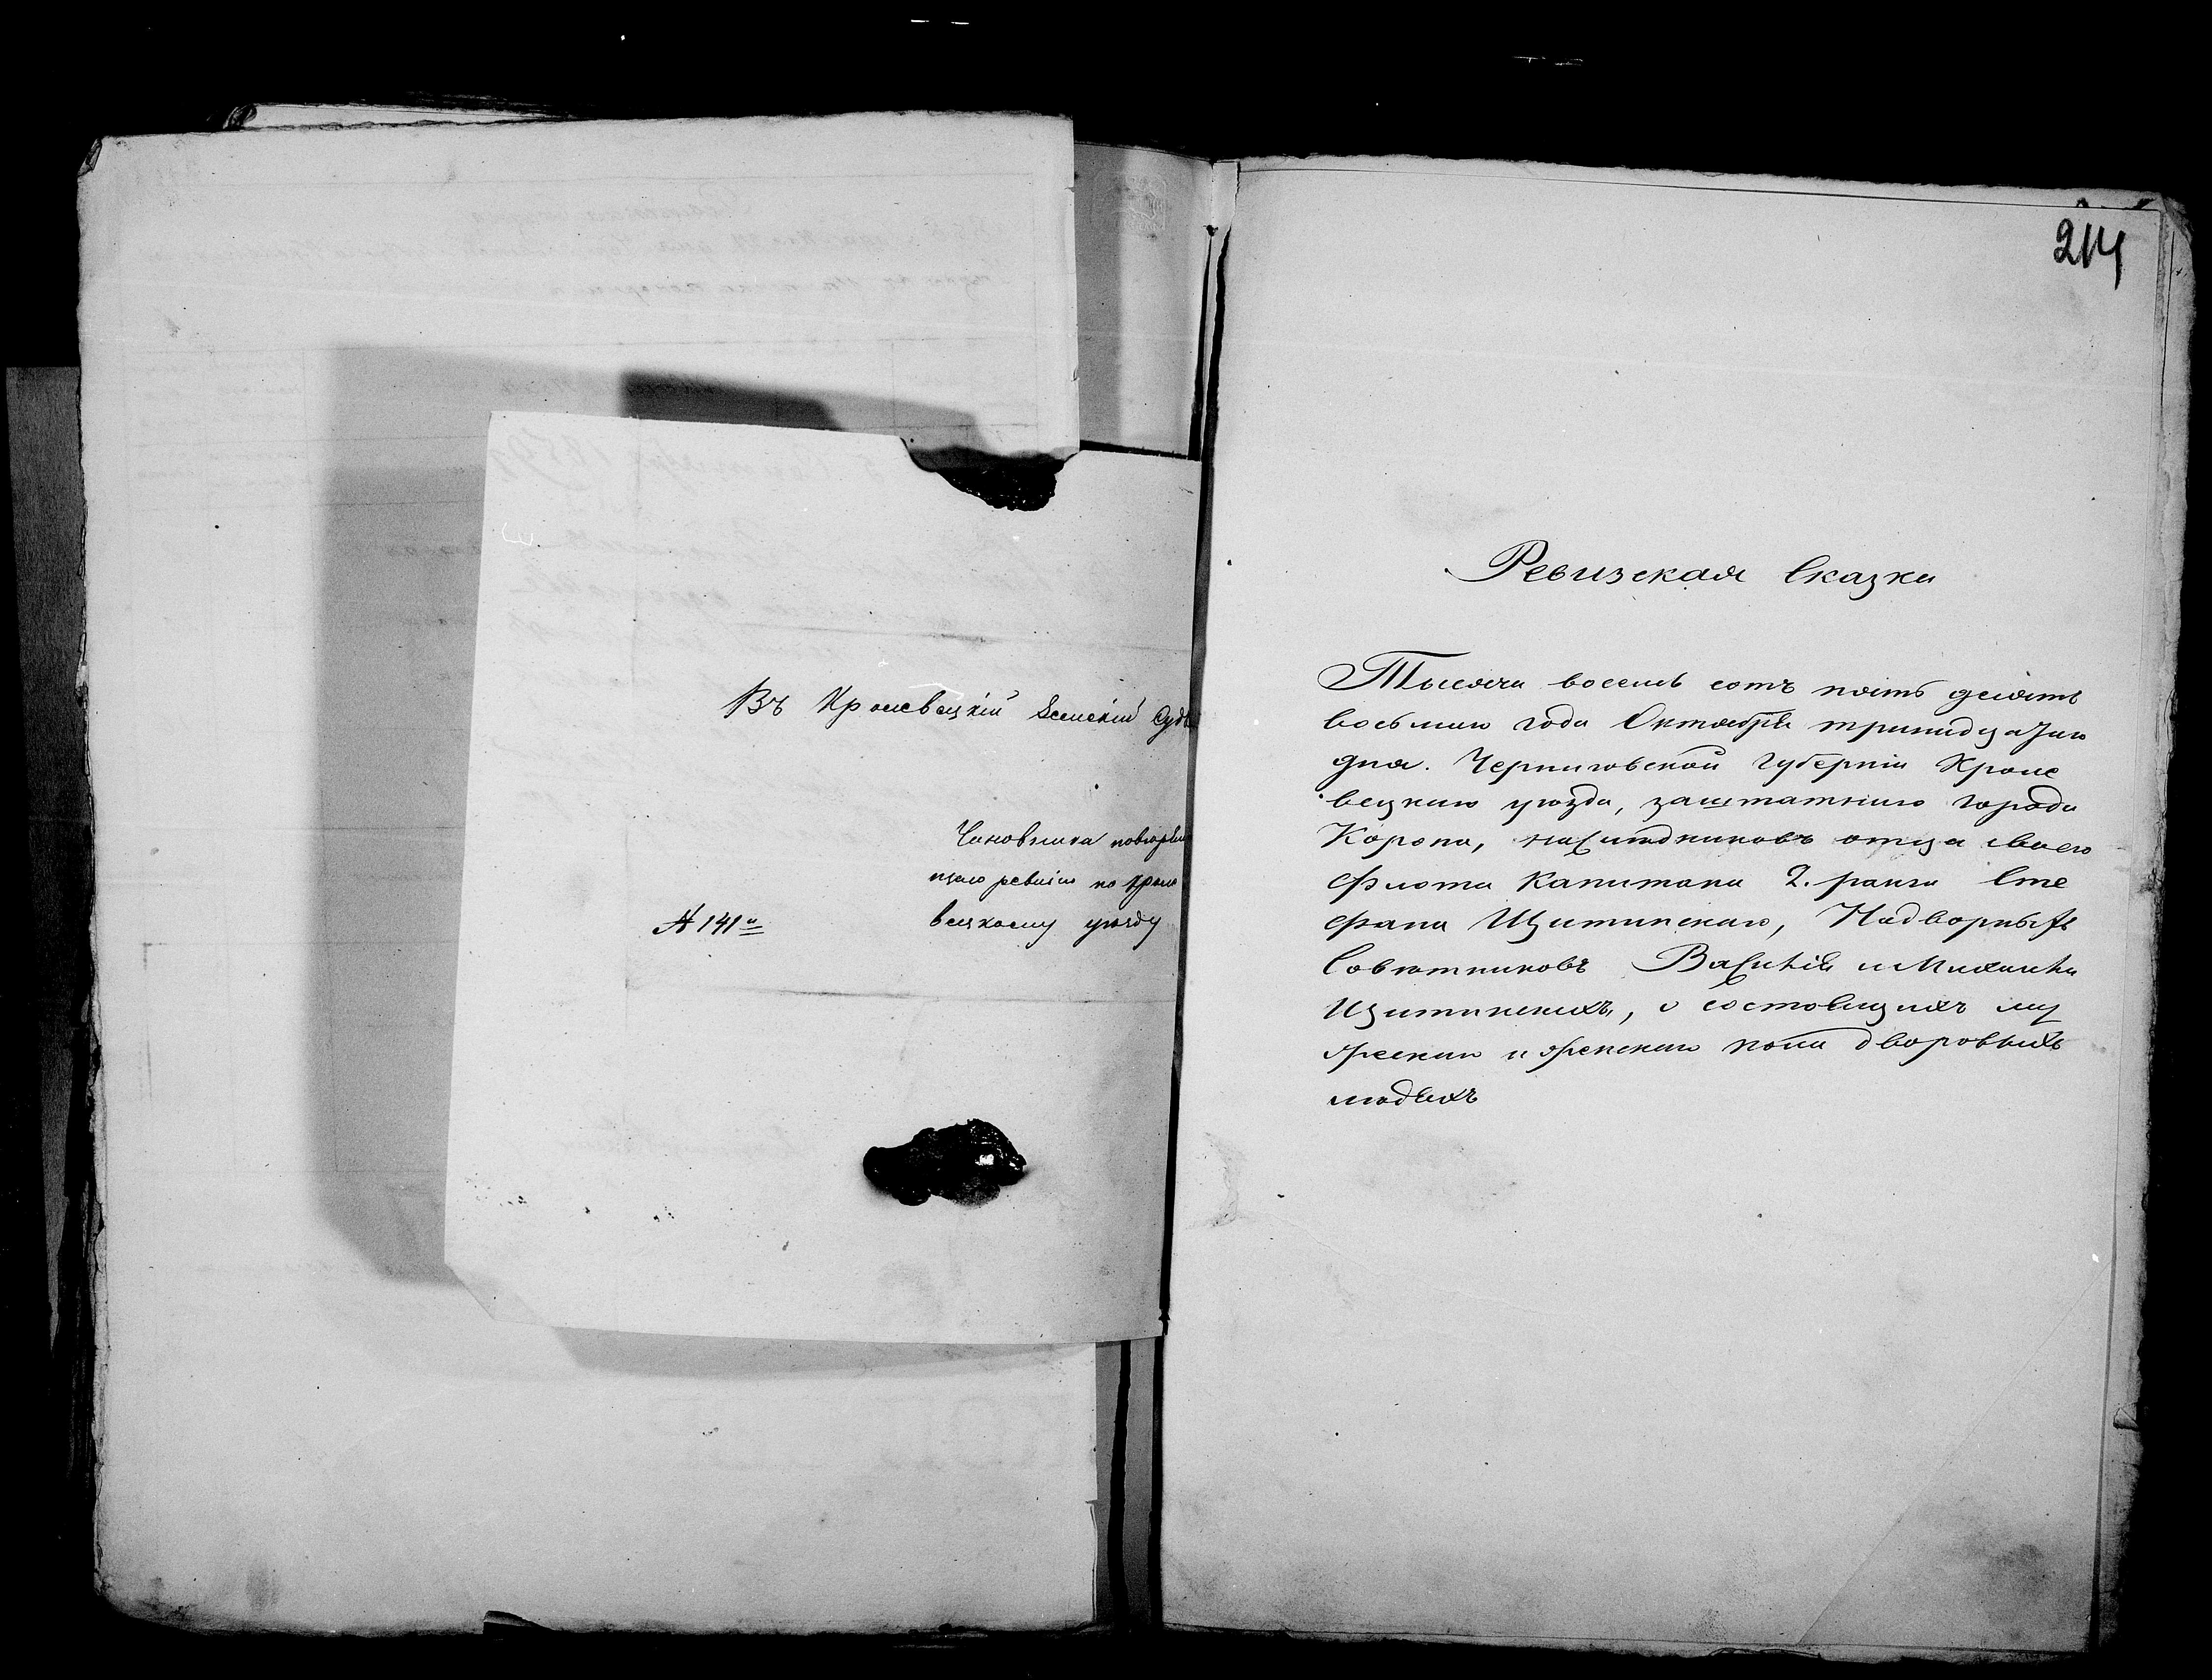 Въ Кролевецкій Земскій Судъ
Чиновника повѣряю
щаго ревизію по Кроле
вецкому уѣзду
№ 141й
214
Ревизская Сказка
Тысяча восемь сотъ пять десятъ
восьмаго года Октября тринадцатаго
дня. Черниговской Губерніи Кроле
вецкаго уѣзда, заштатнаго города
Коропа, наслѣдниковъ отца своего
флота Капитана 2. ранга Сте
фана Щитинскаго, Надворныхъ
Совѣтниковъ Василія и Михаила
Щитинскихъ, о состоящихъ му
жеска и женска пола дворовыхъ
людяхъ